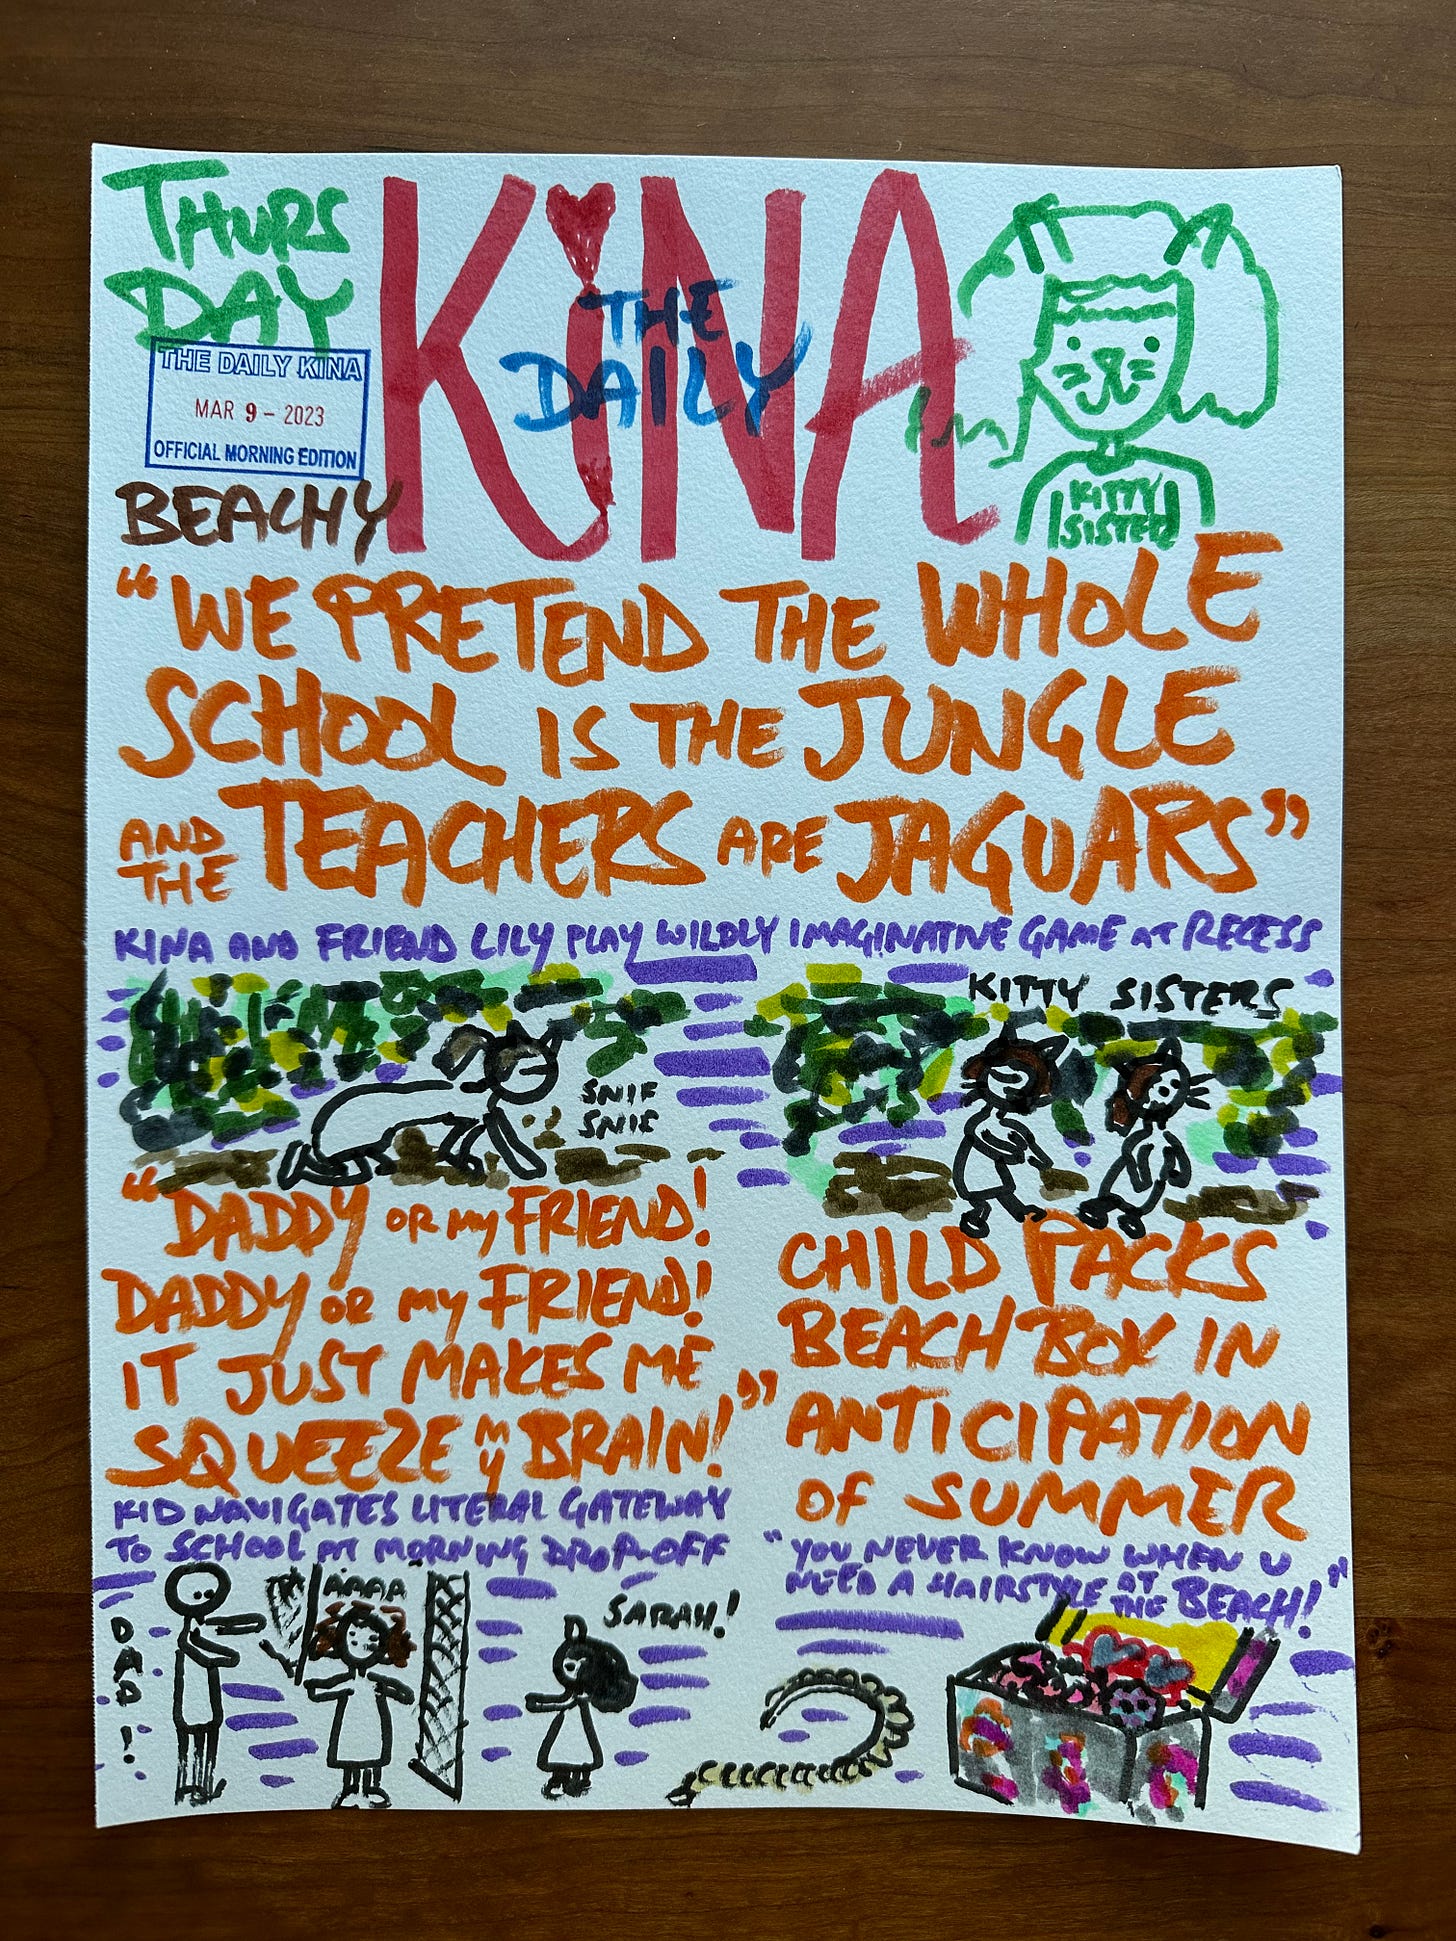 THURS
DAY
THE DAILY KINA
MAR 9 - 2023
OFFICIAL MORNING EDITION
BEACHY
KiNA
THE
DAILY
KITTY
SISTER
"WE PRETEND THE WHOLE
SCHOOL IS THE JUNGLE
AND THE TEACHERS ARE JAGUARS"
KINA AND FRIEND LILY PLAY WILDLY IMAGINATIVE GAME AT RECESS
SNIF
SNIF
KITTY SISTERS
"DADDY OR MY FRIEND!
DADDY OR MY FRIEND!
IT JUST MAKES ME
SQUEEZE MY BRAIN!"
KID NAVIGATES LITERAL GATEWAY
TO SCHOOL AT MORNING DROP-OFF
DAD!
AAAA
SARAH!
CHILD PACKS
BEACH BOX IN
ANTICIPATION
OF SUMMER
"YOU NEVER KNOW WHEN U
NEED A HAIRSTYLE AT THE BEACH!"